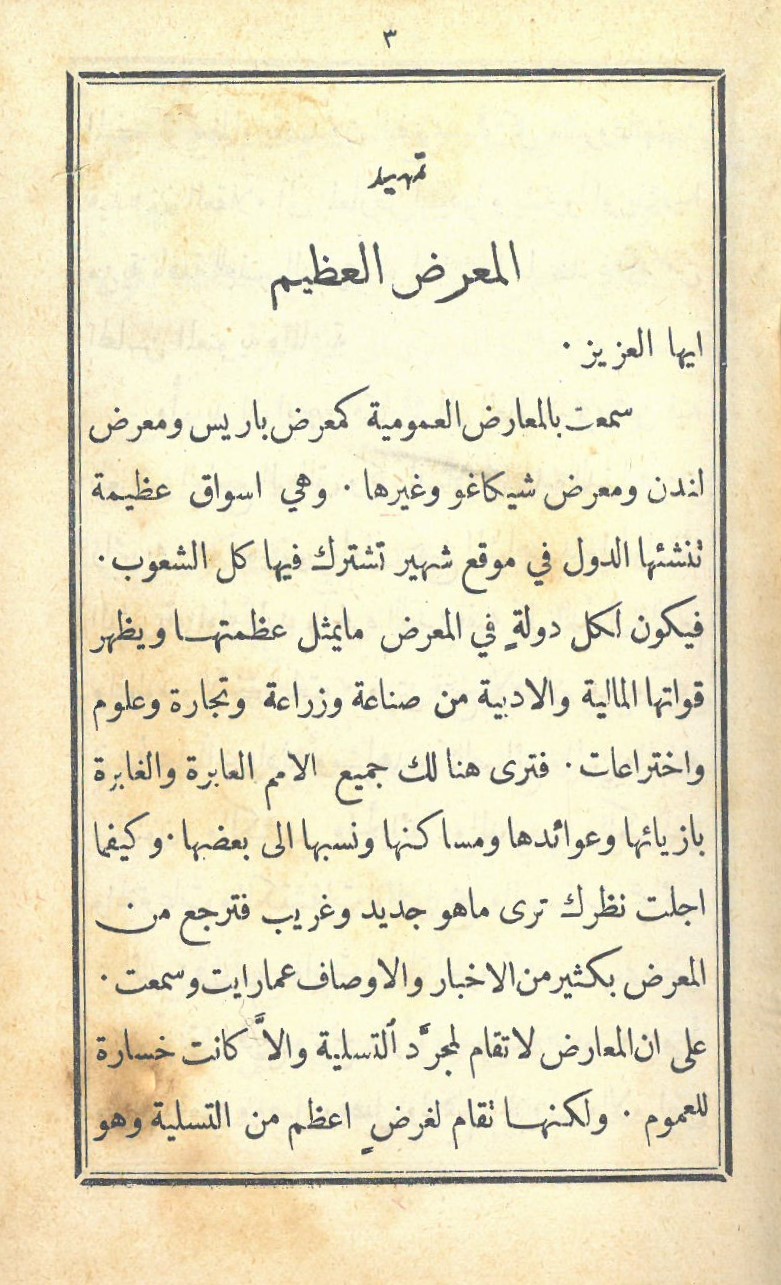 ٣
تمهيد
المعرض العظيم
ايها العزيز ·
سمعت بالمعارض العمومية كمعرض باريس ومعرض
لندن ومعرض شيكاغو وغيرها · وهي اسواق عظيمة
تنشئها الدول في موقع شهير تشترك فيها كل الشعوب ·
فيكون لكل دولةٍ في المعرض مايمثل عظمتها ويظهر
قواتها المالية والادبية من صناعة وزراعة وتجارة وعلوم
واختراعات · فترى هنا لك جميع الامم العابرة والغابرة
بازيائها وعوائدها ومساكنها ونسبها الى بعضها · وكيفما
اجلت نظرك ترى ماهو جديد وغريب فترجع من
المعرض بكثير من الاخبار والاوصاف عما رايت وسمعت ·
على ان المعارض لا تقام لمجرَّد التسلية والاَّ كانت خسارة
للعموم · ولكنها تقام لغرضٍ اعظم من التسلية وهو